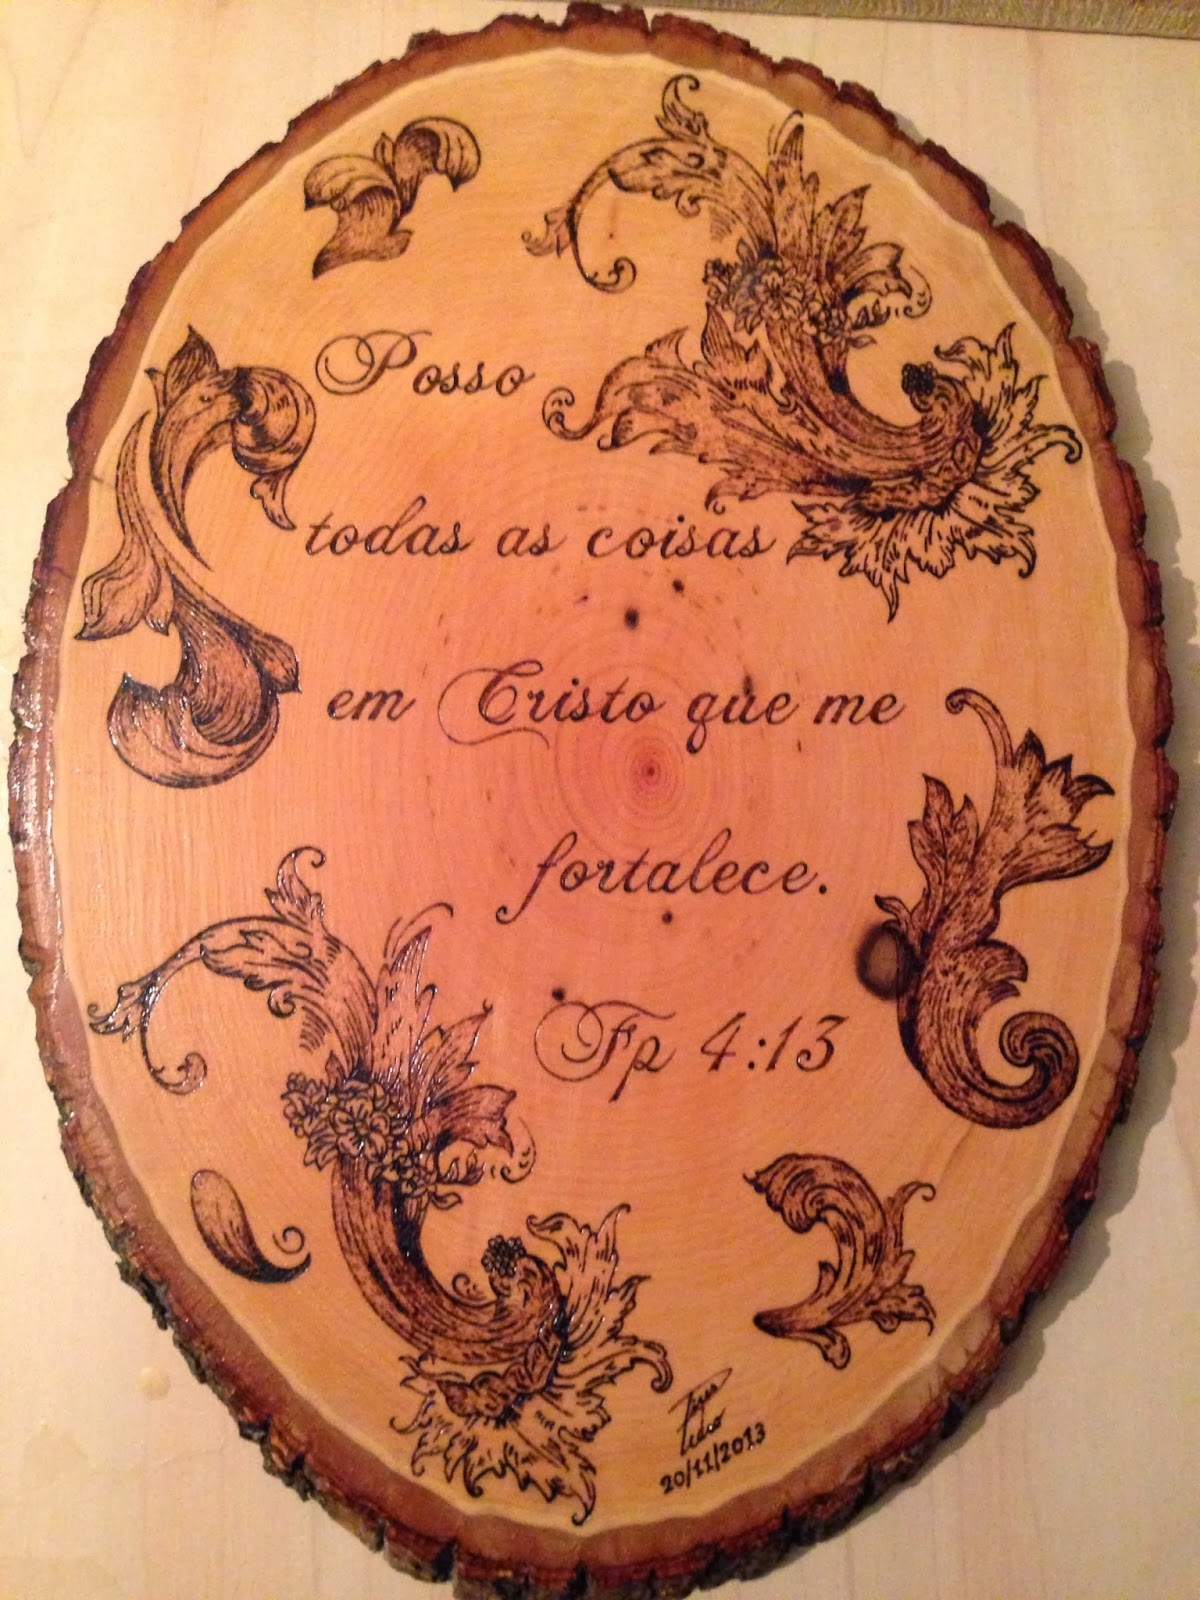 Posso
todas as coisas
em Cristo que me
fortalece.
Fp 4:13
20/11/2013